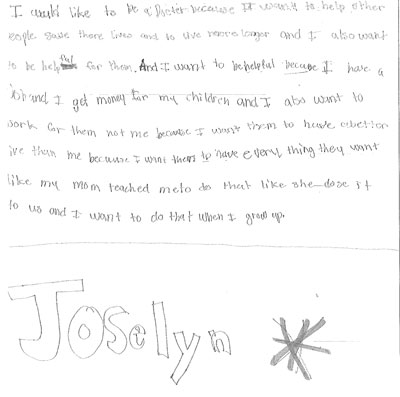 I would like to be a Docter because I want to help other
eople save there lives and to live more longer and I also want
to be helpful for them. And I want to be helpful because I have a
job and I get money for my children and I also want to
work for them not me because I want them to have a better
ive than me because I want them to have every thing they want
like my mom teached me to do that like she dose it
to us and I want to do that when I grow up.
Joselyn